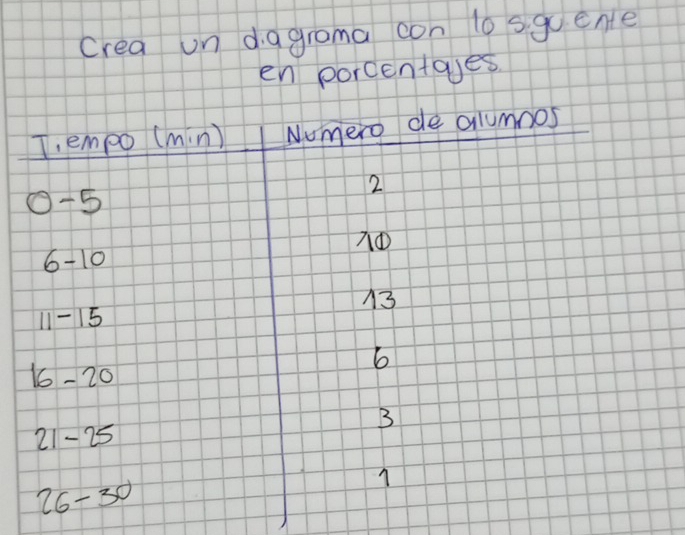 Crea un diagrama con lo siguiente
en porcentajes.
Tiempo (min) Numero de alumnos
0-5 2
6-10 10
11-15 13
16-20 6
21-25 3
26-30 1